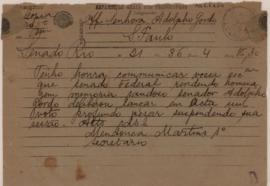 Exma Senhora Adolpho Gordo
S. Paulo
Senado Rio - 21 - 36 - 4 - 15,30
Tenho honra communicar vossa excia
que senado Federal rendendo homena
gem memoria saudoso senador Adolpho
Gordo deliberou lançar em acta um
voto profundo pezar suspendendo sua
sessão. Atts sds
Mendonça Martins 1º
secretario